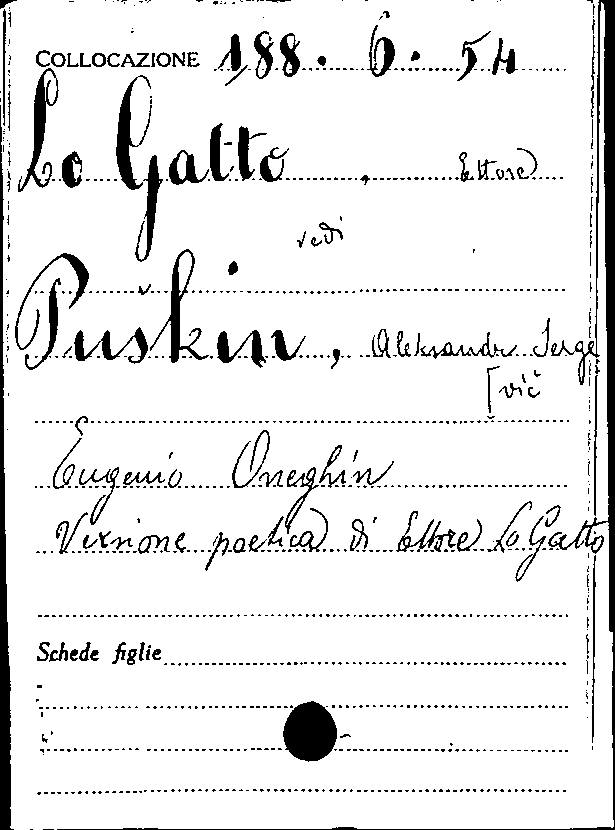 COLLOCAZIONE 188. 6. 54
Lo Gatto, Ettore
vedi
Puškin, Aleksandr Serge
[vič
Eugenio Oneghin
Versione poetica di Ettore Lo Gatto
Schede figlie